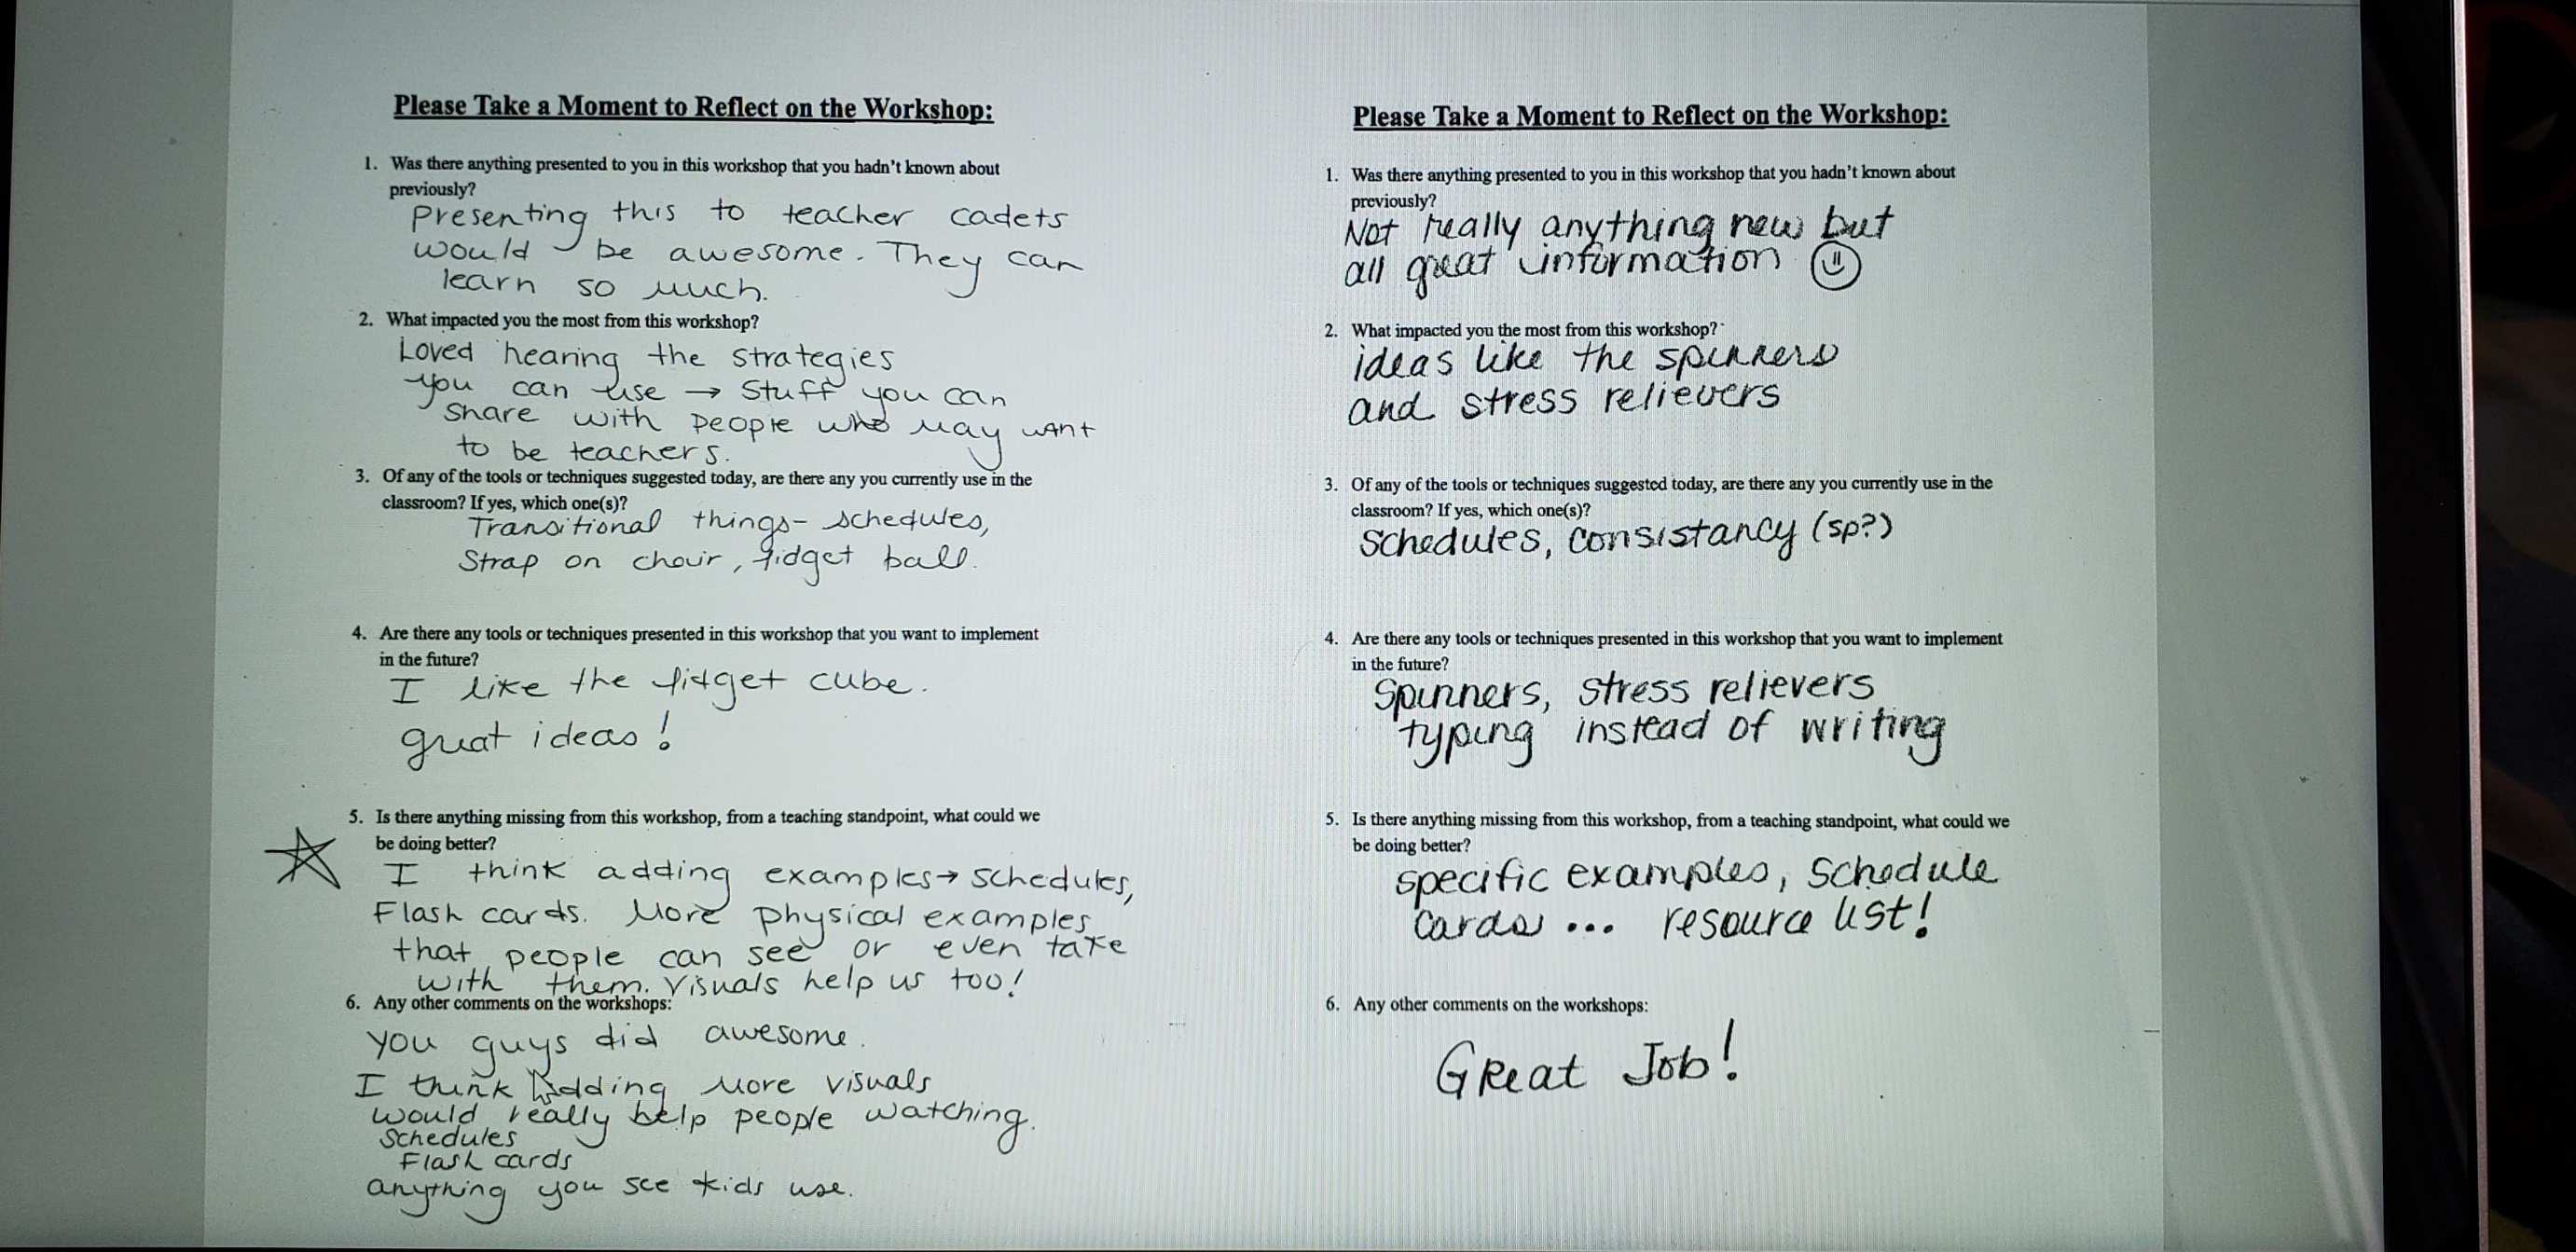 Please Take a Moment to Reflect on the Workshop:
1. Was there anything presented to you in this workshop that you hadn't known about
previously?
Presenting this to teacher cadets
would be awesome. They can
learn so much.
2. What impacted you the most from this workshop?
Loved hearing the strategies
you can use → Stuff you can
share with people who may want
to be teachers.
3. Of any of the tools or techniques suggested today, are there any you currently use in the
classroom? If yes, which one(s)?
Transitional things- schedules,
Strap on chair, fidget ball.
4. Are there any tools or techniques presented in this workshop that you want to implement
in the future?
I like the fidget cube.
great ideas!
5. Is there anything missing from this workshop, from a teaching standpoint, what could we
be doing better?
I think adding examples→ schedules,
Flash cards. More physical examples
that people can see or even take
with them. Visuals help us too!
6. Any other comments on the workshops:
you guys did awesome.
I think adding more visuals
would really help people watching.
Schedules
Flash cards
anything you see kids use.
Please Take a Moment to Reflect on the Workshop:
1. Was there anything presented to you in this workshop that you hadn't known about
previously?
Not really anything new but
all great information
2. What impacted you the most from this workshop?
ideas like the spinners
and stress relievers
3. Of any of the tools or techniques suggested today, are there any you currently use in the
classroom? If yes, which one(s)?
Schedules, consistancy (sp?)
4. Are there any tools or techniques presented in this workshop that you want to implement
in the future?
Spinners, stress relievers
typing instead of writing
5. Is there anything missing from this workshop, from a teaching standpoint, what could we
be doing better?
specific examples, schedule
cards ... resource list!
6. Any other comments on the workshops:
Great Job!